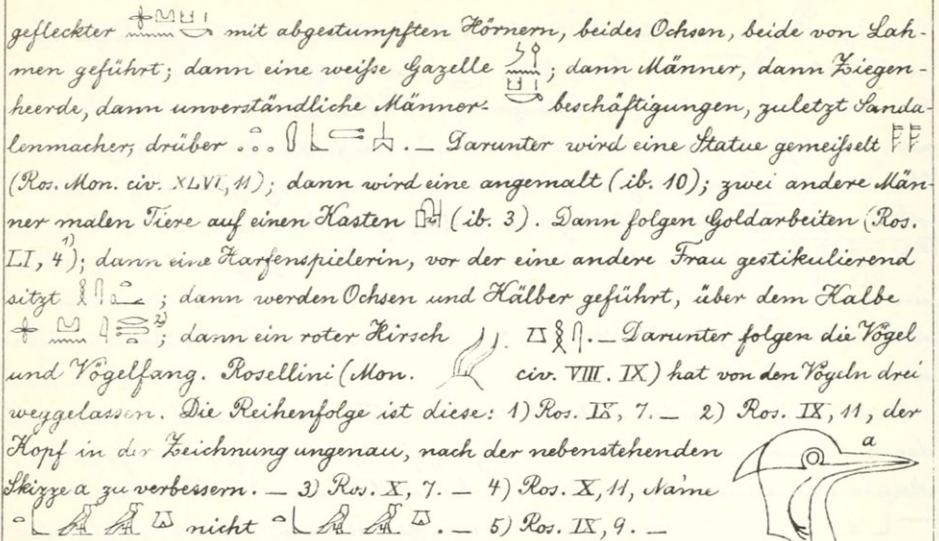 gefleckter mit abgestumpften Hörnern, beides Ochsen, beide von Lah-
men geführt; dann eine weiße Gazelle ; dann Männer, dann Ziegen-
heerde, dann unverständliche Männer- beschäftigungen, zuletzt Sanda-
lenmacher, drüber . — Darunter wird eine Statue gemeißelt
(Ros. Mon. civ. XLVI, 11); dann wird eine angemalt (ib. 10); zwei andere Män-
ner malen Tiere auf einen Kasten (ib. 3). Dann folgen Goldarbeiten (Ros.
LI, 4¹⁾); dann eine Harfenspielerin, vor der eine andere Frau gestikulierend
sitzt ; dann werden Ochsen und Kälber geführt, über dem Kalbe
²⁾; dann ein roter Hirsch . — Darunter folgen die Vögel
und Vogelfang. Rosellini (Mon. civ. VIII. IX) hat von den Vögeln drei
weggelassen. Die Reihenfolge ist diese: 1) Ros. IX, 7. — 2) Ros. IX, 11, der
Kopf in der Zeichnung ungenau, nach der nebenstehenden
a
Skizze a zu verbessern. — 3) Ros. X, 7. — 4) Ros. X, 11, Name
nicht . — 5) Ros. IX, 9. —